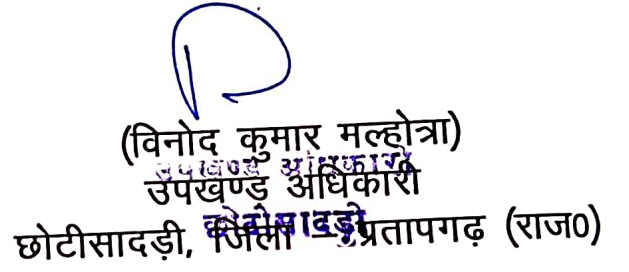 (विनोद कुमार मल्होत्रा)
उपखण्ड अधिकारी
उपखण्ड अधिकारी
छोटीसादड़ी
छोटीसादड़ी, जिला – प्रतापगढ़ (राज0)